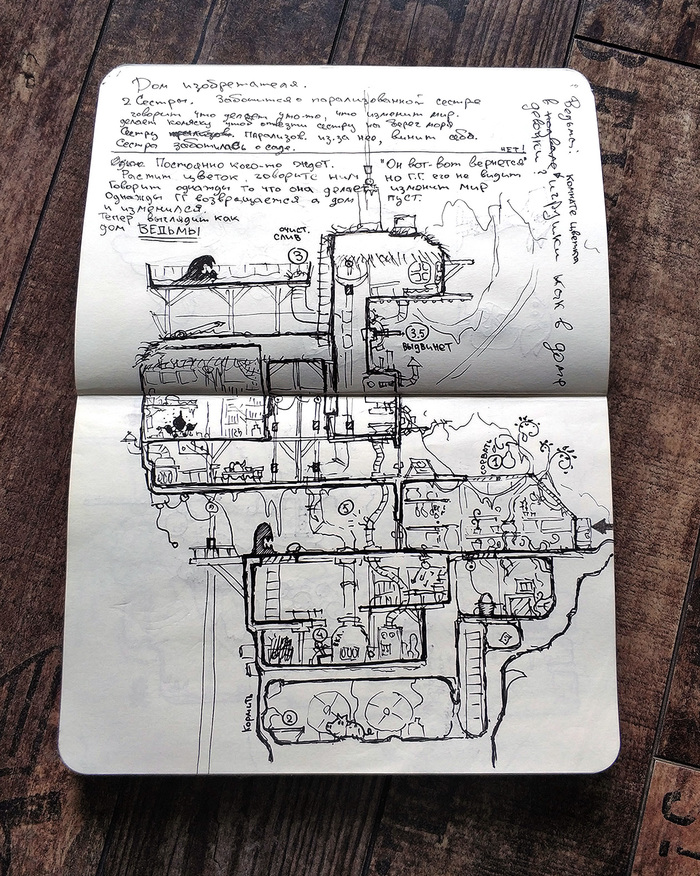 Дом изобретателя.
2 Сестры. Заботится о парализованной сестре
говорит что делает что-то, что изменит мир.
делает коляску чтоб отвезти сестру на берег моря
Сестру Парализов. из.за нее, винит себя.
Сестра заботилась о саде.
НЕТ!
Постоянно кого-то ждет. "Он вот-вот вернется"
Растит цветок, говорит с ним но Г.Г. его не видит
Говорит однажды то что она делает изменит мир
Однажды ГГ возвращается а дом пуст.
и изменился.
Тепер выглядит как
дом ВЕДЬМЫ
Ведьмы.
комнате цветка
игрушки как в доме
девочки?
ОЧИСТ.
СЛИВ
3
3.5
ВЫДВИНЕТ
СОРВАТЬ
1
5
4
2
КОРМИТЬ